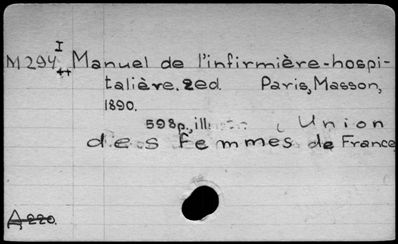 I
M294 Manuel de l'infirmière-hospi-
++ talière. 2ed. Paris, Masson,
1890.
598p., ill. (Union
des Femmes de France
A220.